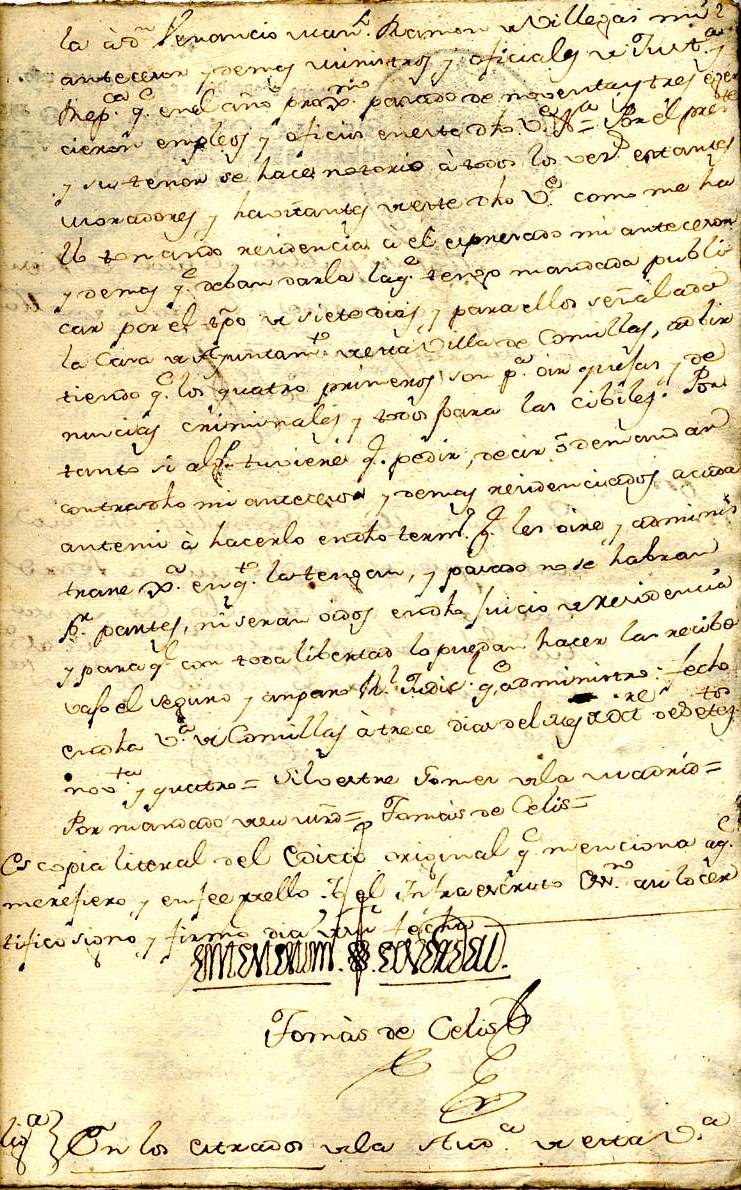 la à Dn Venancio Man.l Ramon de Villegas mi
antecesor y demas ministros y oficiales de Just.a y
Rep.ca q.e en el año prox.mo pasado de noventa y tres exer
cieron empleos y oficios en este dho V.e = Por el pres.te
y su tenor se hace notorio à todos los vez.s estantes
moradores y havitantes de este dho V.e como me ha
llo tomando residencia à el expresado mi antecesor
y demas q.e deban darla la q.e tengo mandada publi
car por el tpo de siete dias y para ellos señalada
la Casa de Ayuntam.to de esta Villa de Comillas, adbir
tiendo q.e los quatro primeros son p.a oir quejas y de
nuncias criminales y todos para las cibiles. Por
tanto si alg.o tuviere q.e pedir, decir ô demandar
contra dho mi antecesor y demas residenciados acuda
ante mi à hacerlo en dho term.o q.e les oire y adminis
trare Jx.a en q.to la tengan, y pasado no se habran
p.r partes, ni seran oidos en dho Juicio de Residencia
y para q.e con toda libertad lo puedan hacer las recibo
vajo el seguro y amparo R.l Judic.l q.e administro: fecho
en dha V.a de Comillas à trece dias del mes de Dre de setez.tos
nov.ta y quatro = Silvestre Gomez de la Madrid =
Por mandado de su mrd = Tomàs de Celis =
Es copia literal del Edicto original q.e menciona a q.e
me refiero y en fee de ello Yo el Infraescrito Ess.no asi lo cer
tifico signo y firmo dia de su fecha
Tomàs de Celis
En los estrados de la Aud.a de esta V.a